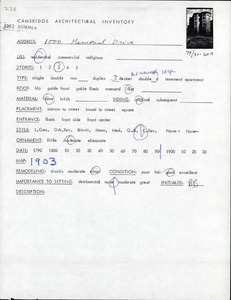 CAMBRIDGE ARCHITECTURAL INVENTORY
ADDRESS: 1000 Memorial Drive
USE: residential commercial religious
STORIES: 1 2 3 4 5
TYPE: single double row duplex 3 decker double 3 tenement apartment
ROOF: hip gable front gable flank mansard flat
MATERIAL: block brick SIDING: original subsequent
PLACEMENT: narrow to street broad to street square
ENTRANCE: flank front side front center
ORNAMENT: little moderate elaborate
DATE: 1790 1800 10 20 30 40 50 60 70 80 90 1900 10 20 30
MAP: 1903
REMODELING: drastic moderate minor CONDITION: poor fair good excellent
IMPORTANCE TO SETTING: detrimental none moderate great INITIALED:
DESCRIPTION: